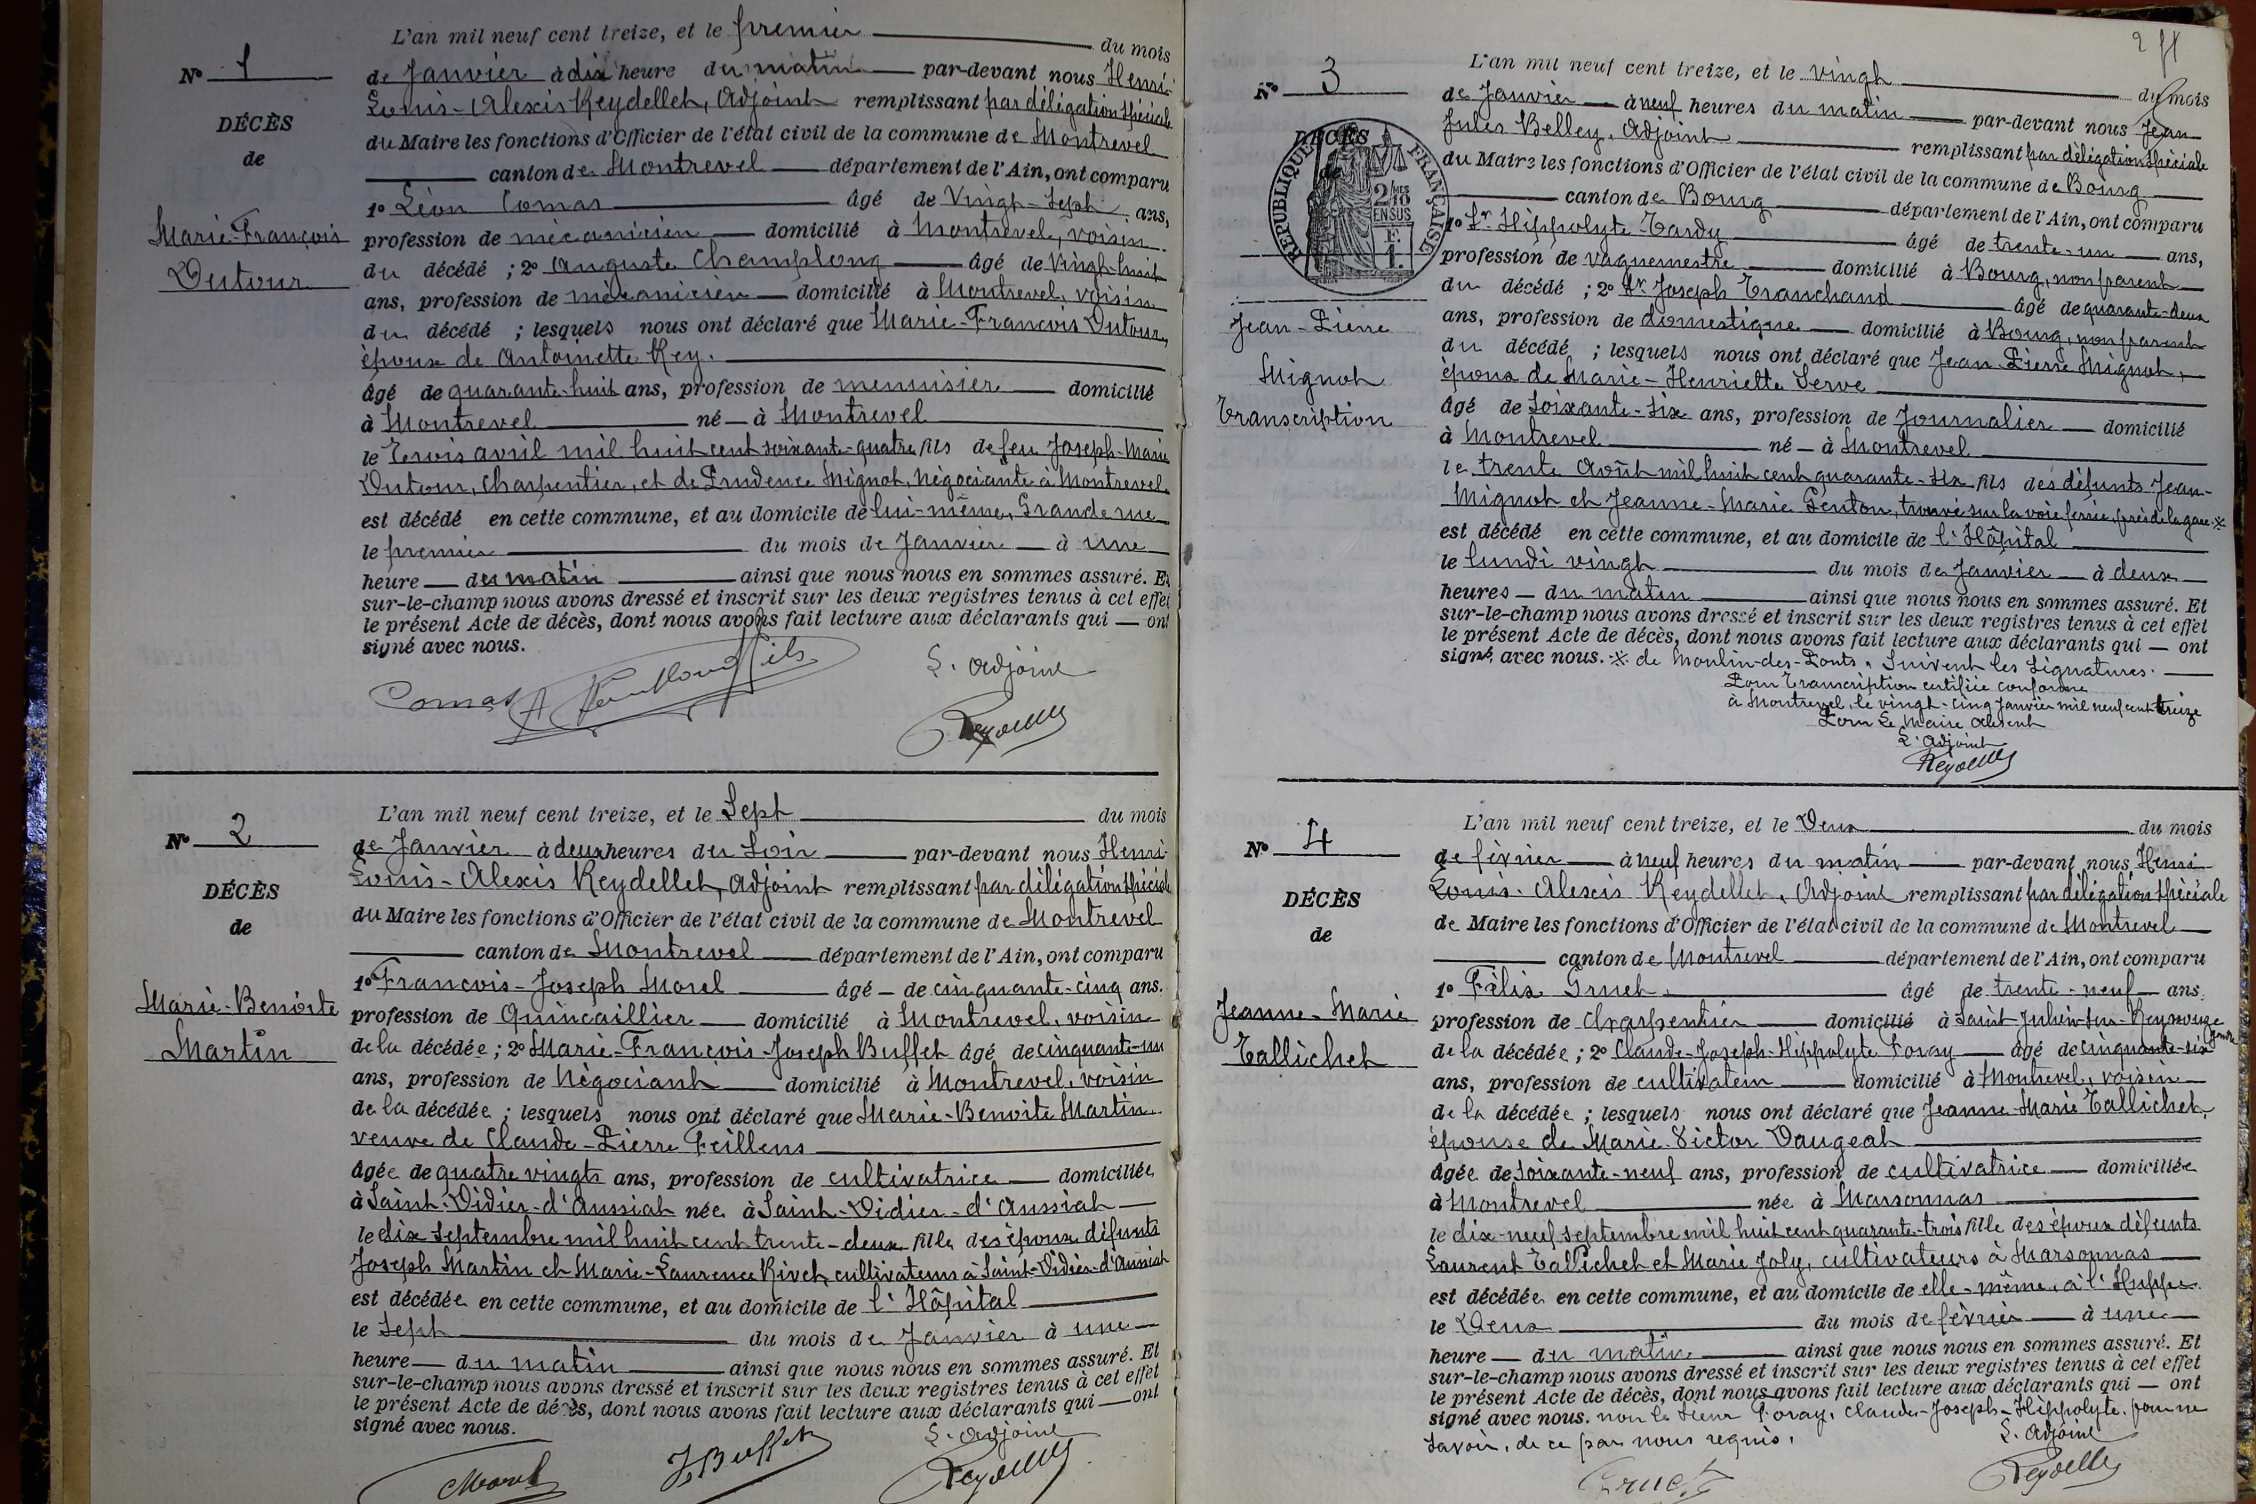 L'an mil neuf cent treize, et le premier du mois
N° 1
de Janvier à dix heure du matin par-devant nous Henri-
Louis-Alexis Reydellet, Adjoint remplissant par délégation spéciale
DÉCÈS
du Maire les fonctions d'Officier de l'état civil de la commune de Montrevel
de
canton de Montrevel département de l'Ain, ont comparu
1° Léon Comas âgé de Vingt-Sept ans,
Marie-François
profession de mécanicien domicilié à Montrevel, voisin
Dutour
du décédé ; 2° Auguste Champlong âgé de Vingt-huit
ans, profession de mécanicien domicilié à Montrevel, voisin
du décédé ; lesquels nous ont déclaré que Marie-François Dutour,
époux de Antoinette Rey.
âgé de quarante-huit ans, profession de menuisier domicilié
à Montrevel né à Montrevel
le Trois avril mil huit cent soixante-quatre fils de feu Joseph-Marie
Dutour, charpentier, et de Prudence Mignot, Négociante à Montrevel
est décédé en cette commune, et au domicile de lui-même, Grande rue
le premier du mois de Janvier à une
heure du matin ainsi que nous nous en sommes assuré. Et
sur-le-champ nous avons dressé et inscrit sur les deux registres tenus à cet effet
le présent Acte de décès, dont nous avons fait lecture aux déclarants qui ont
signé avec nous.
L. Adjoint
Comas
fils
Reydellet
L'an mil neuf cent treize, et le Sept du mois
N° 2
de Janvier à deux heures du Soir par-devant nous Henri-
Louis-Alexis Reydellet, Adjoint remplissant par délégation spéciale
DÉCÈS
du Maire les fonctions d'Officier de l'état civil de la commune de Montrevel
de
canton de Montrevel département de l'Ain, ont comparu
1° François-Joseph Morel âgé de cinquante-cinq ans.
Marie-Benoite
profession de Quincaillier domicilié à Montrevel, voisin
Martin
de la décédée ; 2° Marie-François-Joseph Buffet âgé de cinquante-un
ans, profession de Négociant domicilié à Montrevel, voisin
de la décédée ; lesquels nous ont déclaré que Marie-Benoite Martin
veuve de Claude-Pierre Feillens
âgée de quatre vingts ans, profession de cultivatrice domiciliée
à Saint-Didier-d'Aussiat née à Saint-Didier-d'Aussiat
le dix septembre mil huit cent trente-deux fille des époux défunts
Joseph Martin et Marie-Laurence Rivet, cultivateurs à Saint-Didier-d'Aussiat
est décédée en cette commune, et au domicile de l'Hôpital
le Sept du mois de Janvier à une
heure du matin ainsi que nous nous en sommes assuré. Et
sur-le-champ nous avons dressé et inscrit sur les deux registres tenus à cet effet
le présent Acte de décès, dont nous avons fait lecture aux déclarants qui ont
signé avec nous.
L. Adjoint
Morel
J Buffet
Reydellet
2
L'an mil neuf cent treize, et le vingt du mois
N° 3
de Janvier à neuf heures du matin par-devant nous Jean
Jules Belley, Adjoint remplissant par délégation spéciale
DÉCÈS
du Maire les fonctions d'Officier de l'état civil de la commune de Bourg
de
RÉPUBLIQUE FRANÇAISE
2/10MES
EN SUS
canton de Bourg département de l'Ain, ont comparu
1° Sr. Hippolyte Tardy âgé de trente-un ans,
profession de vaguemestre domicilié à Bourg, non parent
du décédé ; 2° Sr. Joseph Tranchand âgé de quarante-deux
ans, profession de domestique domicilié à Bourg, non parent
Jean-Pierre
du décédé ; lesquels nous ont déclaré que Jean-Pierre Mignot,
Mignot
époux de Marie-Henriette Serve
Transcription
âgé de Soixante-six ans, profession de Journalier domicilié
à Montrevel né à Montrevel
le trente Août mil huit cent quarante-six fils des défunts Jean-
Mignot et Jeanne-Marie Genton, trouvé sur la voie ferrée, près de la gare ※
est décédé en cette commune, et au domicile de l'Hôpital
le lundi vingt du mois de Janvier à deux
heures du matin ainsi que nous nous en sommes assuré. Et
sur-le-champ nous avons dressé et inscrit sur les deux registres tenus à cet effet
le présent Acte de décès, dont nous avons fait lecture aux déclarants qui ont
signé avec nous. ※ de Moulin-des-Ponts. Suivent les Signatures.
Pour Transcription certifiée conforme
à Montrevel, le vingt-cinq Janvier mil neuf cent treize
Pour Le Maire Absent
L'Adjoint
Reydellet
L'an mil neuf cent treize, et le Deux du mois
N° 4
de février à neuf heures du matin par-devant nous Henri
Louis-Alexis Reydellet, Adjoint remplissant par délégation spéciale
DÉCÈS
de Maire les fonctions d'Officier de l'état civil de la commune de Montrevel
de
canton de Montrevel département de l'Ain, ont comparu
1° Félix Gruet âgé de trente-neuf ans,
Jeanne-Marie
profession de charpentier domicilié à Saint-Julien-sur-Reyssouze gendre
Tallichet
de la décédée ; 2° Claude-Joseph-Hippolyte Foray âgé de cinquante-six
ans, profession de cultivateur domicilié à Montrevel, voisin
de la décédée ; lesquels nous ont déclaré que Jeanne-Marie Tallichet,
épouse de Marie-Victor Daugeat
âgée de Soixante-neuf ans, profession de cultivatrice domiciliée
à Montrevel née à Marsonnas
le dix-neuf septembre mil huit cent quarante-trois fille des époux défunts
Laurent Tallichet et Marie Joly, cultivateurs à Marsonnas
est décédée en cette commune, et au domicile de elle-même, à l'Huppe
le Deux du mois de février à une
heure du matin ainsi que nous nous en sommes assuré. Et
sur-le-champ nous avons dressé et inscrit sur les deux registres tenus à cet effet
le présent Acte de décès, dont nous avons fait lecture aux déclarants qui ont
signé avec nous. non le sieur Foray, Claude-Joseph-Hippolyte, pour ne
savoir, de ce par nous requis.
L. Adjoint
Gruet
Reydellet